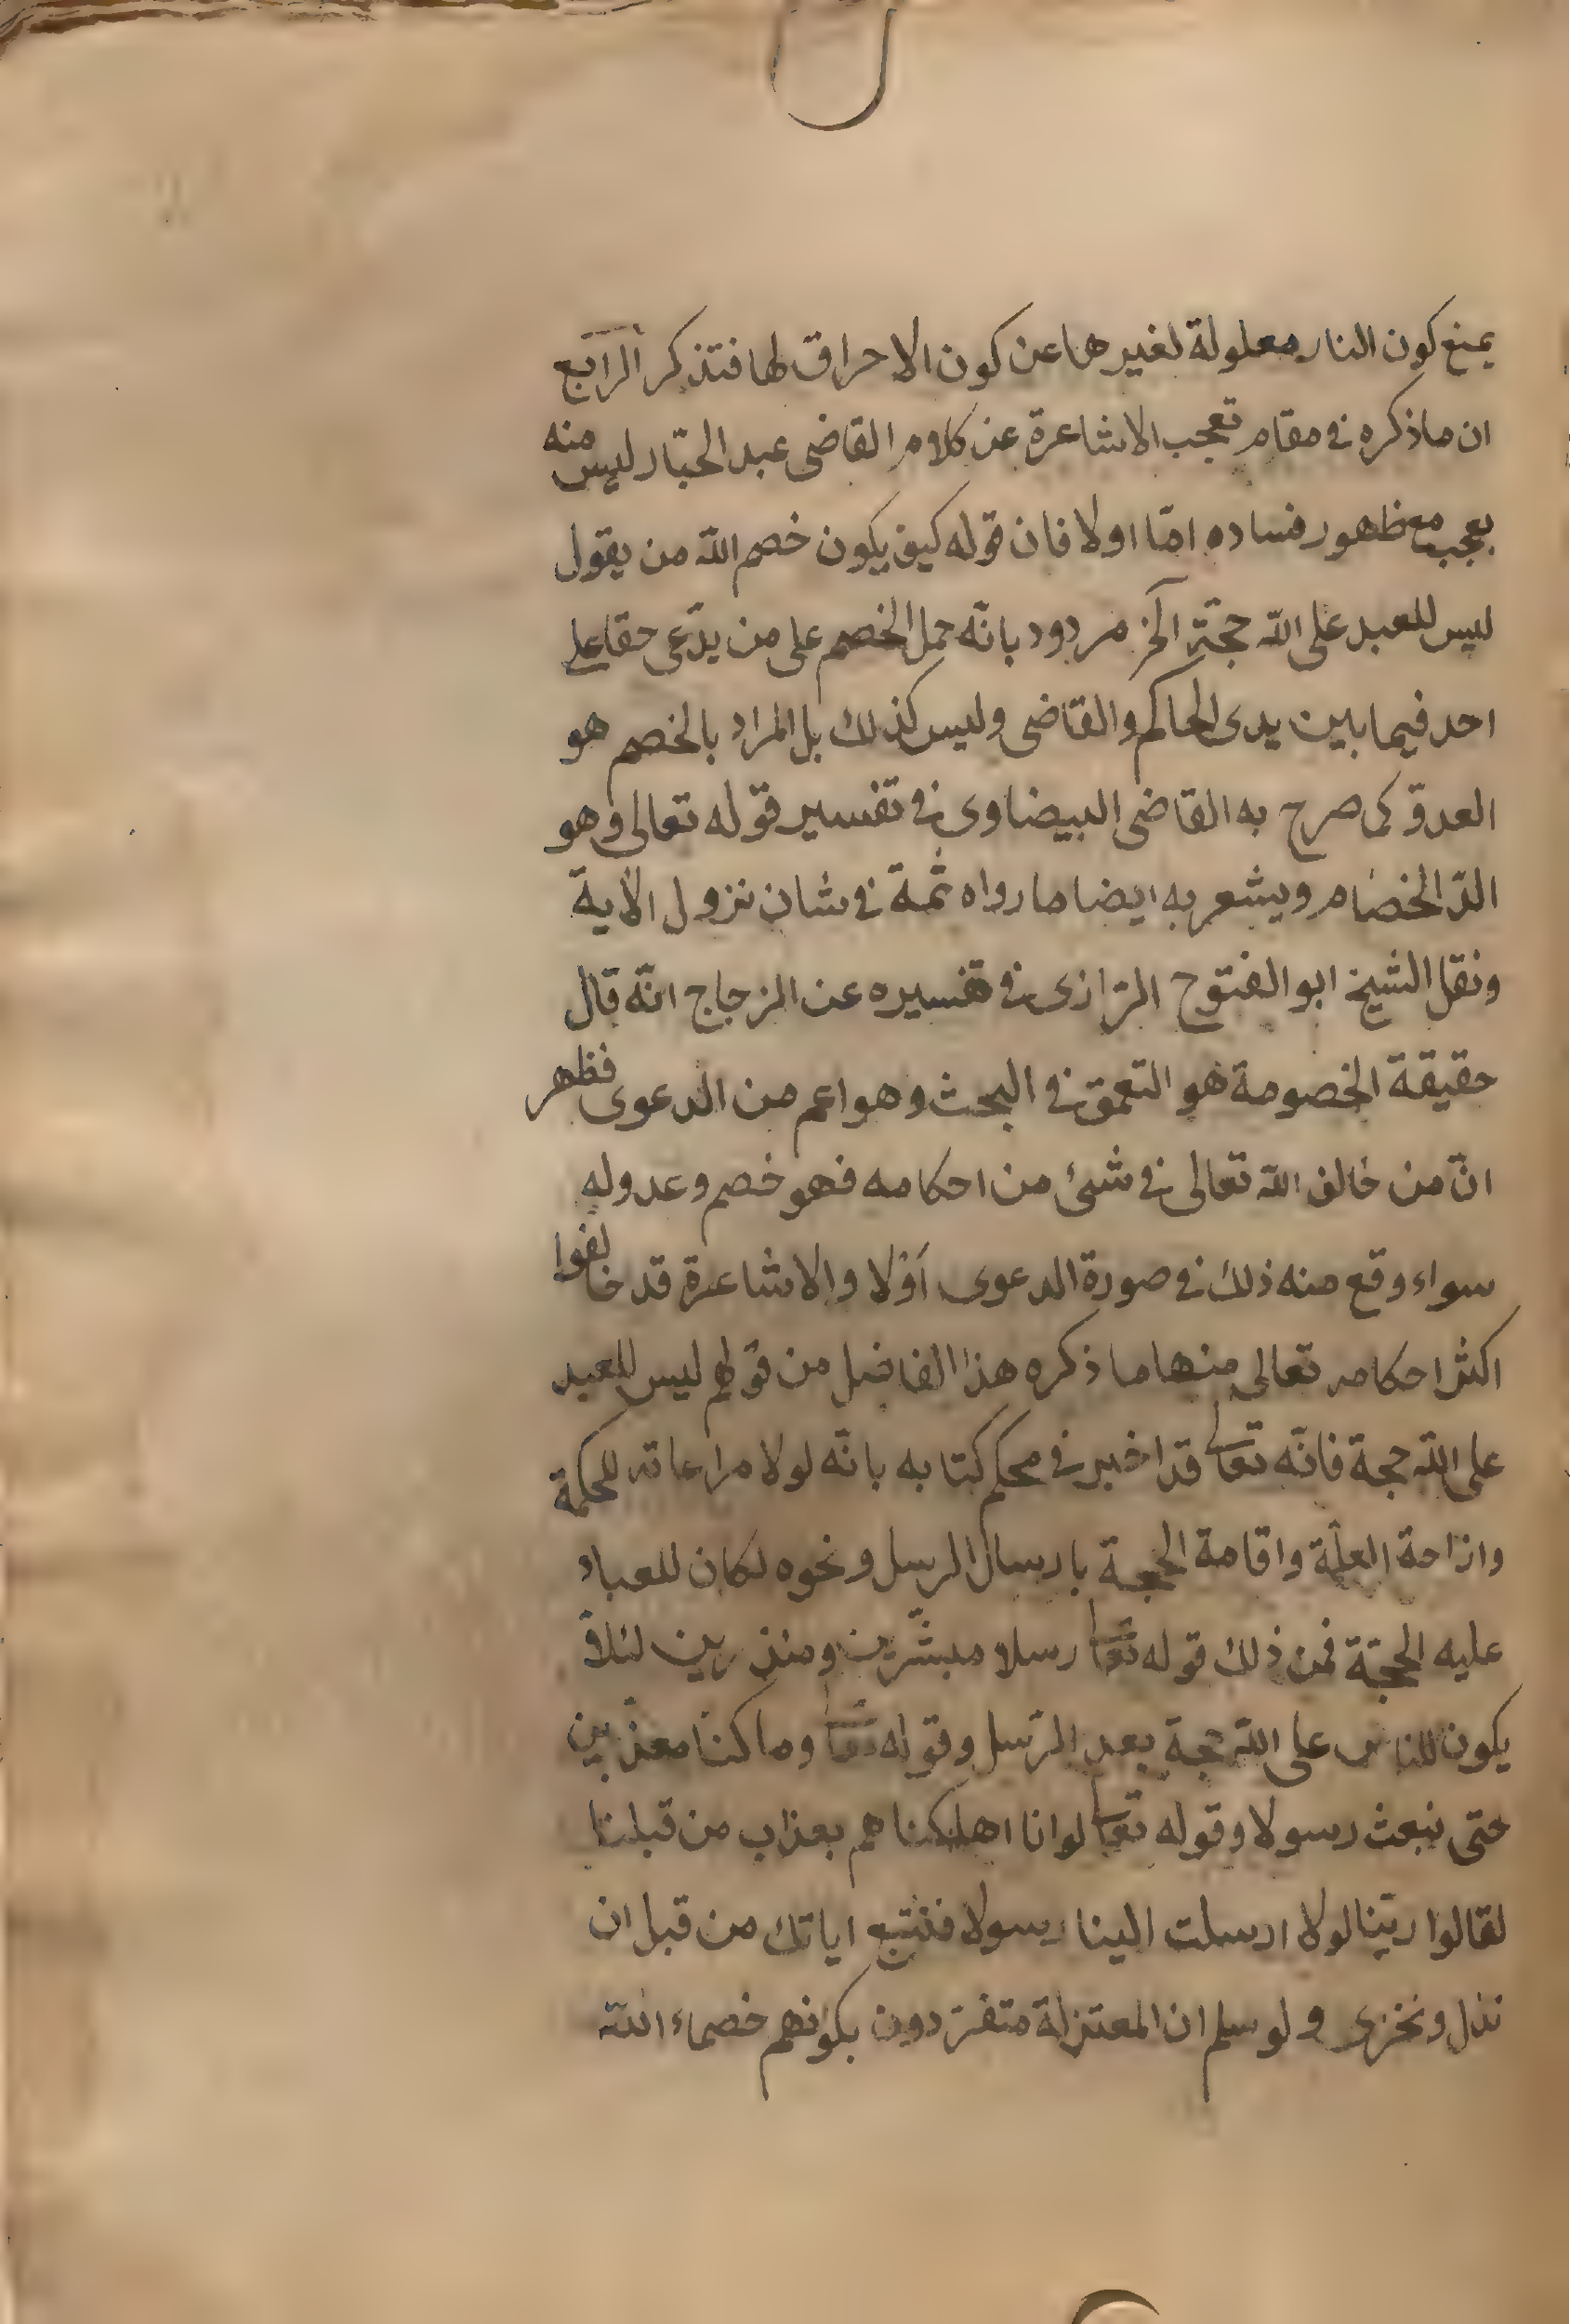 يمنع كون النار معلولة لغيرها عن كون الاحراق لها فتذكر الرابع
ان ما ذكره في مقام تعجب الاشاعرة عن كلام القاضى عبد الجبّار ليس منه
بعجب مع ظهور فساده امّا اولا فان قوله كيف يكون خصم الله من يقول
ليس للعبد على الله حجّة الخ مردود بانّه حمل الخصم على من يدّعى حقا على
احد فيما بين يدى الحاكم والقاضى وليس كذلك بل المراد بالخصم هو
العدوّ كما صرح به القاضى البيضاوى في تفسير قوله تعالى وهو
الدّ الخصام ويشعر به ايضا ما رواه ثمة في شان نزول الاية
ونقل الشيخ ابو الفتوح الرّازى في تفسيره عن الزجاج انّه قال
حقيقة الخصومة هو التعمق في البحث وهو اعم من الدعوى فظهر
انّ من خالف الله تعالى في شئ من احكامه فهو خصم وعدو له
سواء وقع منه ذلك في صورة الدعوى اوّلا والاشاعرة قد خالفوا
اكثر احكامه تعالى منها ما ذكره هذا الفاضل من قولهم ليس للعبد
على الله حجة فانّه تعالى قد اخبر في محكم كتابه بانّه لولا مراعاته للحكمة
وازاحة العلّة واقامة الحجة بارسال الرسل ونحوه لكان للعباد
عليه الحجّة فمن ذلك قوله تعا رسلا مبشّرين ومنذرين لئلا
يكون للناس على الله حجة بعد الرّسل وقوله تعا وما كنّا معذّبين
حتى نبعث رسولا وقوله تعا لو انا اهلكناهم بعذاب من قبلنا
لقالوا ربّنا لولا ارسلت الينا رسولا فنتبع اياتك من قبل ان
نذل ونخزى ولو سلم ان المعتزلة متفرّدون بكونهم خصماء الله